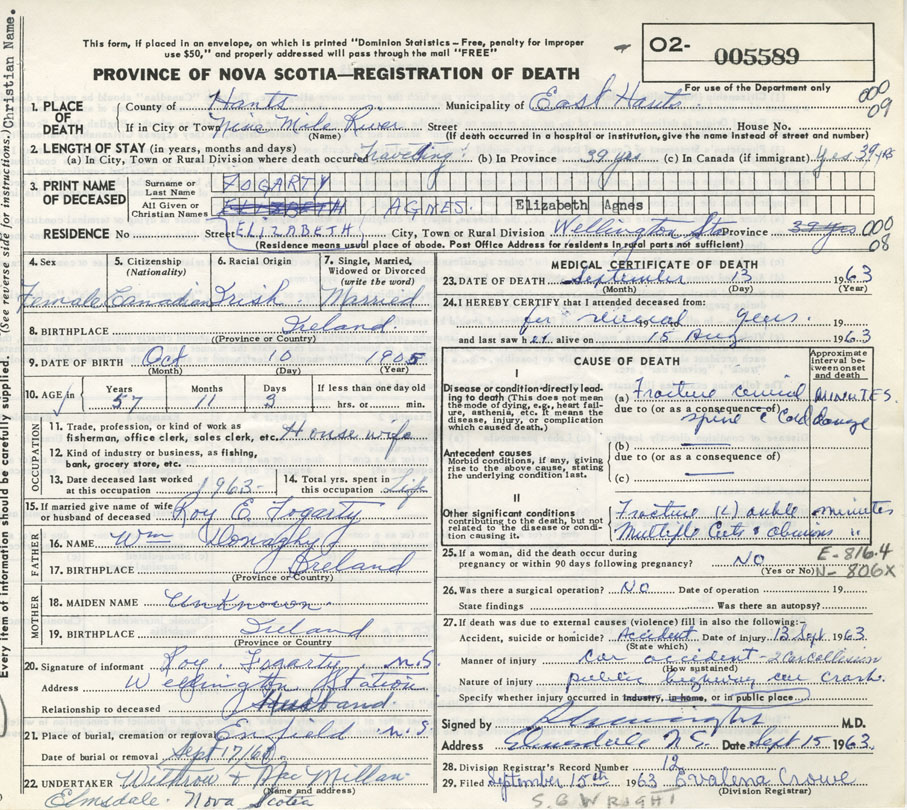 Every item of information should be carefully supplied. (See reverse side for instructions.) Christian Name.
This form, if placed in an envelope, on which is printed "Dominion Statistics – Free, penalty for improper
use $50," and properly addressed will pass through the mail "FREE"
O2- 005589
PROVINCE OF NOVA SCOTIA—REGISTRATION OF DEATH
For use of the Department only
000
09
1. PLACE OF DEATH County of Hants Municipality of East Hants
If in City or Town Nine Mile River Street House No.
(Name) (If death occurred in a hospital or institution, give the name instead of street and number)
2. LENGTH OF STAY (in years, months and days)
(a) In City, Town or Rural Division where death occurred Travelling (b) In Province 39 yrs (c) In Canada (if immigrant) Yes 39 yrs
3. PRINT NAME OF DECEASED Surname or Last Name FOGARTY
All Given or Christian Names ELIZABETH AGNES. Elizabeth Agnes
RESIDENCE No Street ELIZABETH City, Town or Rural Division Wellington Sta Province 39 yrs 000
08
(Residence means usual place of abode. Post Office Address for residents in rural parts not sufficient)
4. Sex 5. Citizenship (Nationality) 6. Racial Origin 7. Single, Married, Widowed or Divorced (write the word)
Female Canadian Irish. Married
8. BIRTHPLACE Ireland.
(Province or Country)
9. DATE OF BIRTH Oct 10 1905
(Month) (Day) (Year)
10. AGE in Years Months Days If less than one day old
57 11 3 hrs. or min.
OCCUPATION
11. Trade, profession, or kind of work as
fisherman, office clerk, sales clerk, etc. House wife
12. Kind of industry or business, as fishing,
bank, grocery store, etc.
13. Date deceased last worked at this occupation 1963 14. Total yrs. spent in this occupation Life
15. If married give name of wife or husband of deceased Roy E. Fogarty
FATHER
16. NAME Wm Donaghy
17. BIRTHPLACE Ireland
(Province or Country)
MOTHER
18. MAIDEN NAME Unknown.
19. BIRTHPLACE Ireland
(Province or Country)
20. Signature of informant Roy. Fogarty N.S
Address Wellington Station
Relationship to deceased Husband.
21. Place of burial, cremation or removal Enfield N.S.
Date of burial or removal Sept 17/63
22. UNDERTAKER Withrow & MacMillan
(Name and address)
Elmsdale. Nova Scotia
MEDICAL CERTIFICATE OF DEATH
23. DATE OF DEATH September 13 1963
(Month) (Day) (Year)
24. I HEREBY CERTIFY that I attended deceased from:
for several years. 19
and last saw her alive on 15 Aug 1963
CAUSE OF DEATH
Approximate interval between onset and death
I
Disease or condition directly leading to death (This does not mean the mode of dying, e.g., heart failure, asthenia, etc. It means the disease, injury, or complication which caused death.)
(a) Fracture cervical MINUTES.
due to (or as a consequence of)
spine & Cord damage
Antecedent causes
Morbid conditions, if any, giving rise to the above cause, stating the underlying condition last.
(b)
due to (or as a consequence of)
(c)
II
Other significant conditions
contributing to the death, but not related to the disease or condition causing it.
Fracture (L) ankle minutes
Multiple Cuts & abrasions "
25. If a woman, did the death occur during
pregnancy or within 90 days following pregnancy? NO
(Yes or No)
E-816.4
N-806X
26. Was there a surgical operation? NO Date of operation 19
State findings Was there an autopsy?
27. If death was due to external causes (violence) fill in also the following:
Accident, suicide or homicide? Accident Date of injury 13 Sept 1963
(State which)
Manner of injury car accident - 2 car collision
(How sustained)
Nature of injury public highway car crash.
Specify whether injury occurred in industry, in home, or in public place
Signed by M.D.
Address Elmsdale N.S. Date Sept 15 1963.
28. Division Registrar's Record Number 12
29. Filed September 15th 1963 Evalena Crowe
(Division Registrar)
S. G WRIGHT